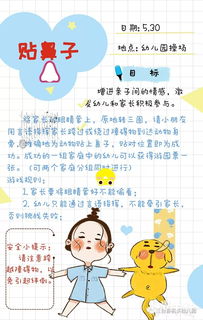 日期:5.30
贴鼻子
地点:幼儿园操场
目标
增进亲子间的情感,激
发幼儿和家长积极参与。
将家长的眼睛蒙上,原地转三圈,请小朋友
用言语指挥家长跨过或绕过障碍物到达动物身
旁,准确地为动物贴上鼻子,贴对位置即为成
功。成功的一组家庭中的幼儿可以获得游园票一
张。(可两个家庭分组同时进行)
游戏规则:
1.家长要将眼睛蒙好不能偷看;
2.幼儿只能通过言语指挥,不能牵引家长,
否则挑战失败;
安全小提示:
请注意跨
越障碍物,以
免引起绊倒。